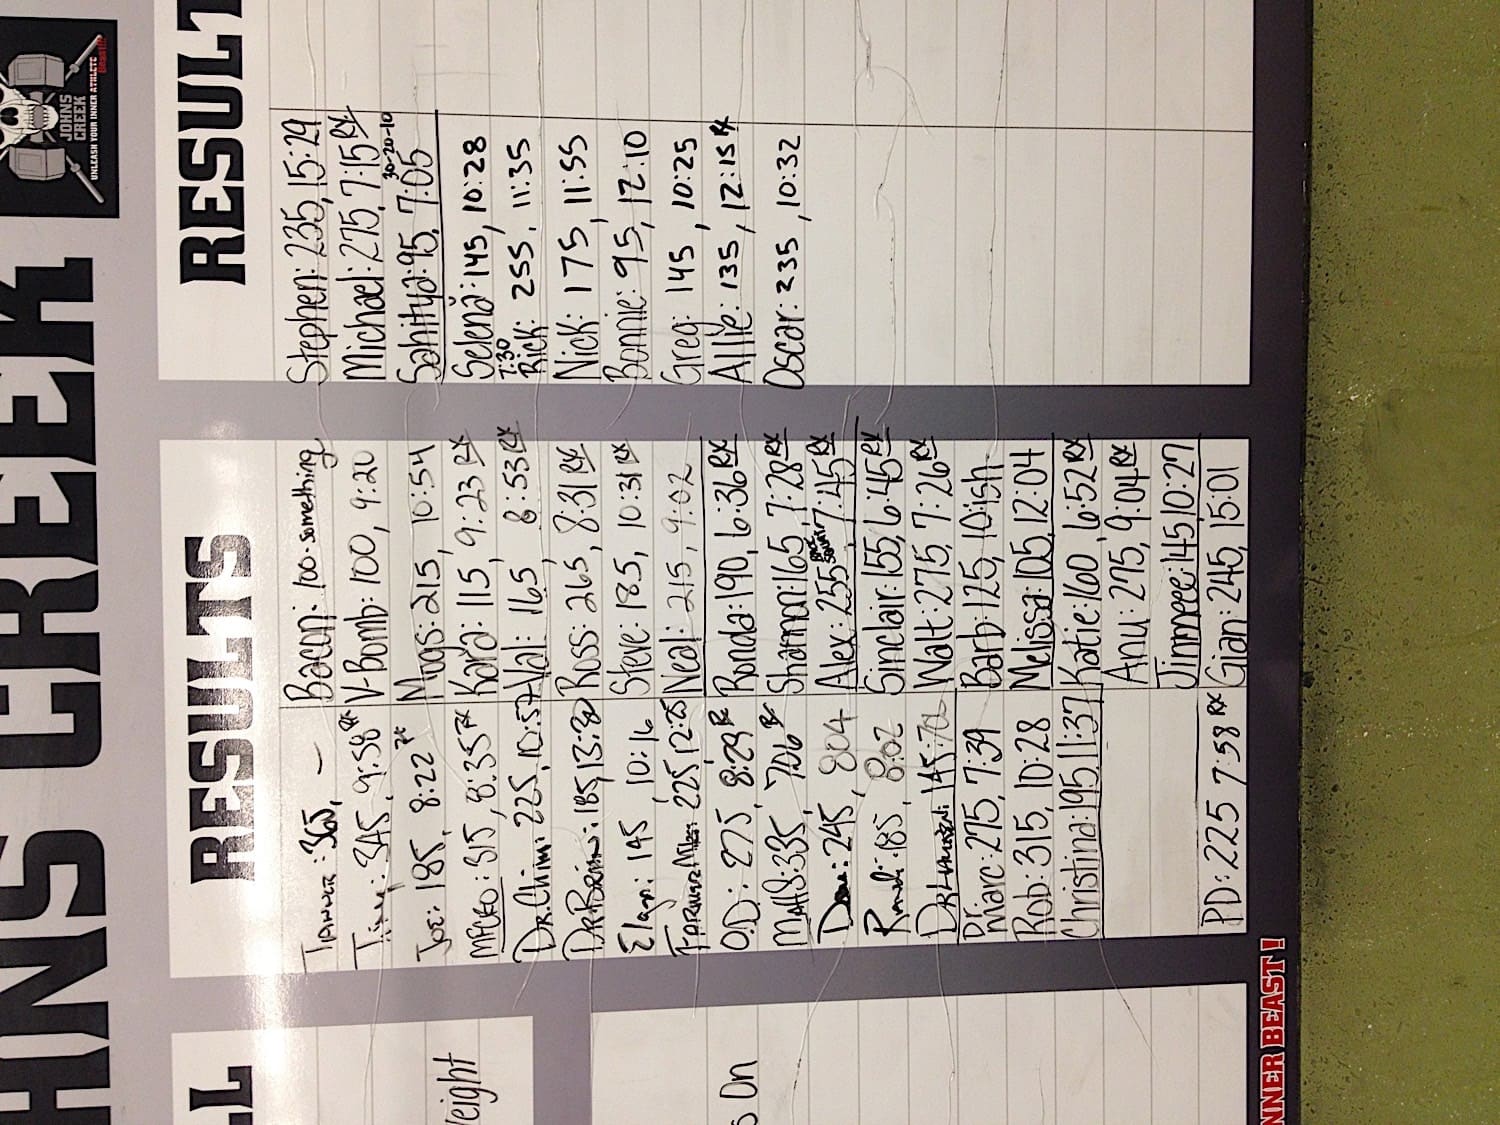 HNS CREEK
JOHNS
CREEK
UNLEASH YOUR INNER ATHLETE
LL
eight
s On
NNER BEAST!
RESULTS
Tanner: 365, —
Timy: 345, 9:58 RX
Joe: 185, 8:22 RX
Micko: 315, 8:35 RX
Dr. Chim: 225, 10:57
Dr Brian: 185, 13:
Elayn: 145, 10:16
Farmer Max 225, 12:25
O.D.: 275, 8:29 RX
Matt S: 335, 7:06 RX
Dan: 245, 8:04
Randi: 185, 8:02
145,
Dr. Marc: 275, 7:39
Rob: 315, 10:28
Christina: 195 11:37
PD: 225 7:58 RX
Bacon: 100-something
V-Bomb: 100, 9:20
Mugs: 215, 10:54
Kara: 115, 9:23 RX
Val: 165, 8:53 RX
Ross: 265, 8:31 RX
Steve: 185, 10:31 RX
Neal: 215, 9:02
Ronda: 190, 6:36 RX
Shannon: 165, 7:28 RX
Alex: 255 7:45 RX
Sinclair: 155, 6:45 RX
Walt: 275, 7:26 RX
Barb: 125, 10:ish
Melissa: 105, 12:04
Katie: 160, 6:52 RX
Anu: 275, 9:04 RX
Jimmeee: 145 10:27
Gian: 245, 15:01
RESULT
Stephen: 235, 15:29
Michael: 275, 7:15 RX
Sahitya: 95, 7:05 30-20-10
Selena: 145, 10:28
7:30
Rick: 255, 11:35
Nick: 175, 11:55
Bonnie: 95, 12:10
Greg: 145, 10:25
Allie: 135, 12:15 RX
Oscar: 235, 10:32